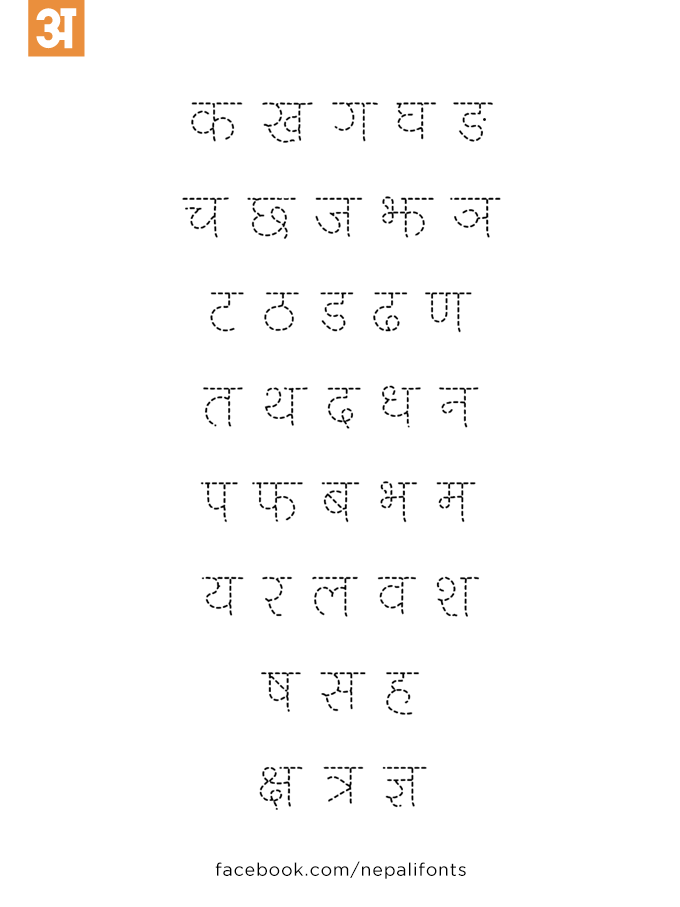 अ
क ख ग घ ङ
च छ ज झ ञ
ट ठ ड ढ ण
त थ द ध न
प फ ब भ म
य र ल व श
ष स ह
क्ष त्र ज्ञ
facebook.com/nepalifonts